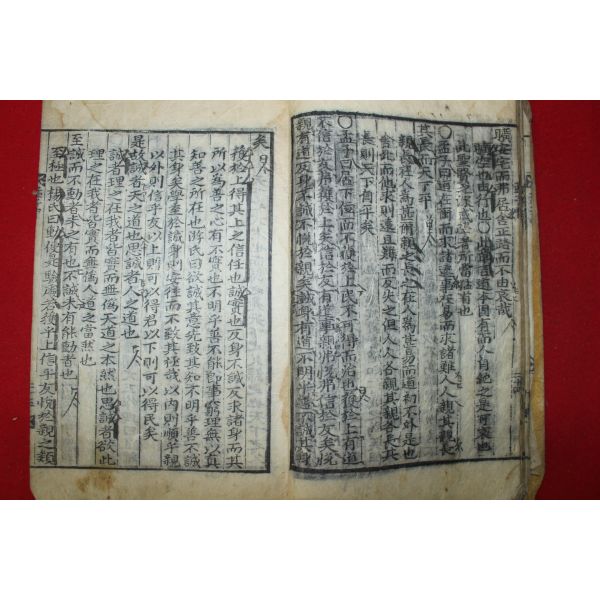 曠安宅而弗居舍正路而不由哀哉
曠空也由行也○此章言道本固有而人自絶之是可哀也
此聖賢之深戒學者所當猛省也
○孟子曰道在爾而求諸遠事在易而求諸難人人親其親長
其長而天下平
親長在人爲甚爾親之長之在人爲甚易而道初不外是也
舍此而他求則遠且難而反失之但人人各親其親各長其
長則天下自平矣
○孟子曰居下位而不獲於上民不可得而治也獲於上有道
不信於友弗獲於上矣信於友有道事親弗悅弗信於友矣悅
親有道反身不誠不悅於親矣誠身有道不明乎善不誠其身
矣
獲於上得其上之信任也誠實也反身不誠反求諸身而其
所以爲善之心有不實也不明乎善不能即事窮理無以真
知善之所在也游氏曰欲誠其意先致其知不明乎善不誠
其身矣學至於誠身則安往而不致其極哉以內則順乎親
以外則信乎友以上則可以得君以下則可以得民矣
是故誠者天之道也思誠者人之道也
誠者理之在我者皆實而無僞天道之本然也思誠者欲此
理之在我者皆實而無僞人道之當然也
至誠而不動者未之有也不誠未有能動者也
至極也楊氏曰動便是驗處若獲乎上信乎友悅於親之類